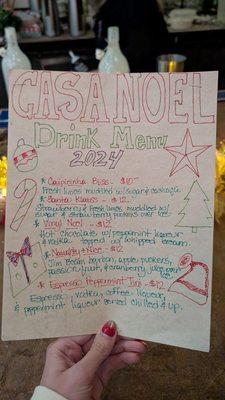 CASA NOEL
Drink Menu
2024
* Caipirinha Bliss - $10
Fresh limes muddled w/sugar & cachaça
* Santa Klauss - $12
Strawberry & fresh limes muddled w/
sugar & strawberry puckers over ice.
* Vinyl Noel - $12
Hot Chocolate w/peppermint liqueur
& vodka topped w/whipped cream.
* Naughty + Nice - $12
Jim Beam bourbon, apple puckers,
passion fruit, & cranberry juice over
ice.
* Espresso Peppermint Tini - $12
Espresso, vodka, coffee liqueur,
& peppermint liqueur served chilled & up.